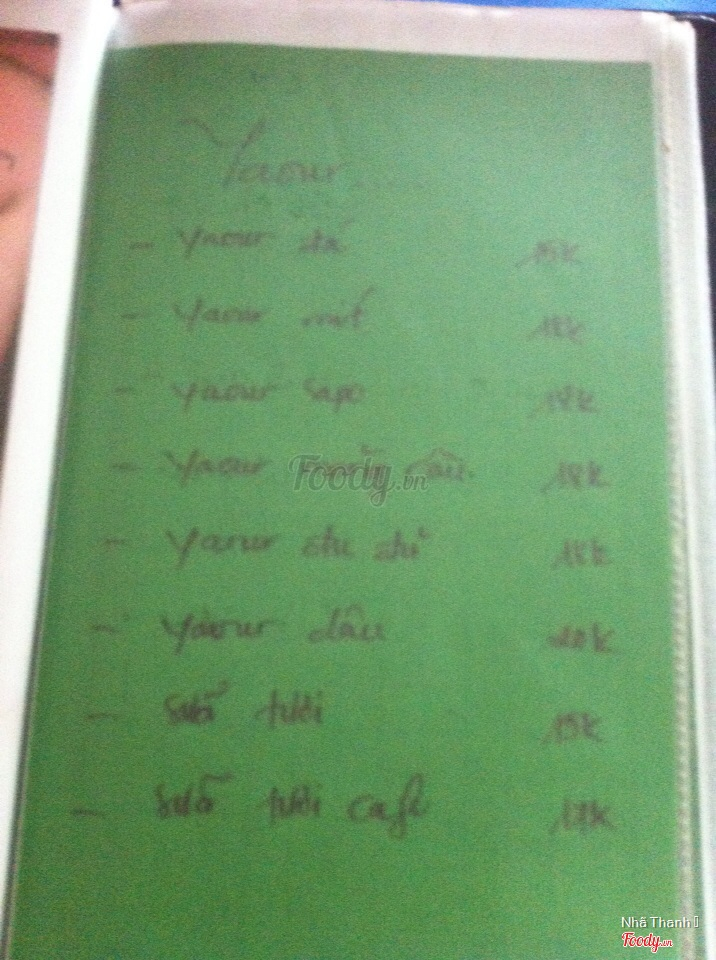 Yaour
- Yaour đá 15k
- Yaour mít 18k
- Yaour sapo 18k
- Yaour cầu 18k
- Yaour đu đủ 18k
- Yaour dâu 20k
- Sữa tươi 15k
- Sữa tươi cafe 17k
Foody.vn
Nhã Thanh
Foody.vn